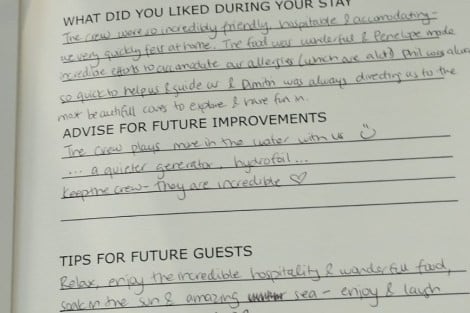 WHAT DID YOU LIKED DURING YOUR STAY
The crew were so incredibly friendly, hospitable & accomodating -
we very quickly felt at home. The food was wonderful & Penelope made
incredible efforts to accomodate our allergies (which are alot). Phil was always
so quick to help us & guide us & Dimitri was always directing us to the
most beautiful coves to explore & have fun in.
ADVISE FOR FUTURE IMPROVEMENTS
The crew plays more in the water with us ☺
... a quieter generator, hydrofoil ...
Keep the crew - They are incredible ♡
TIPS FOR FUTURE GUESTS
Relax, enjoy the incredible hospitality & wonderful food,
soak in the sun & amazing sea - enjoy & laugh